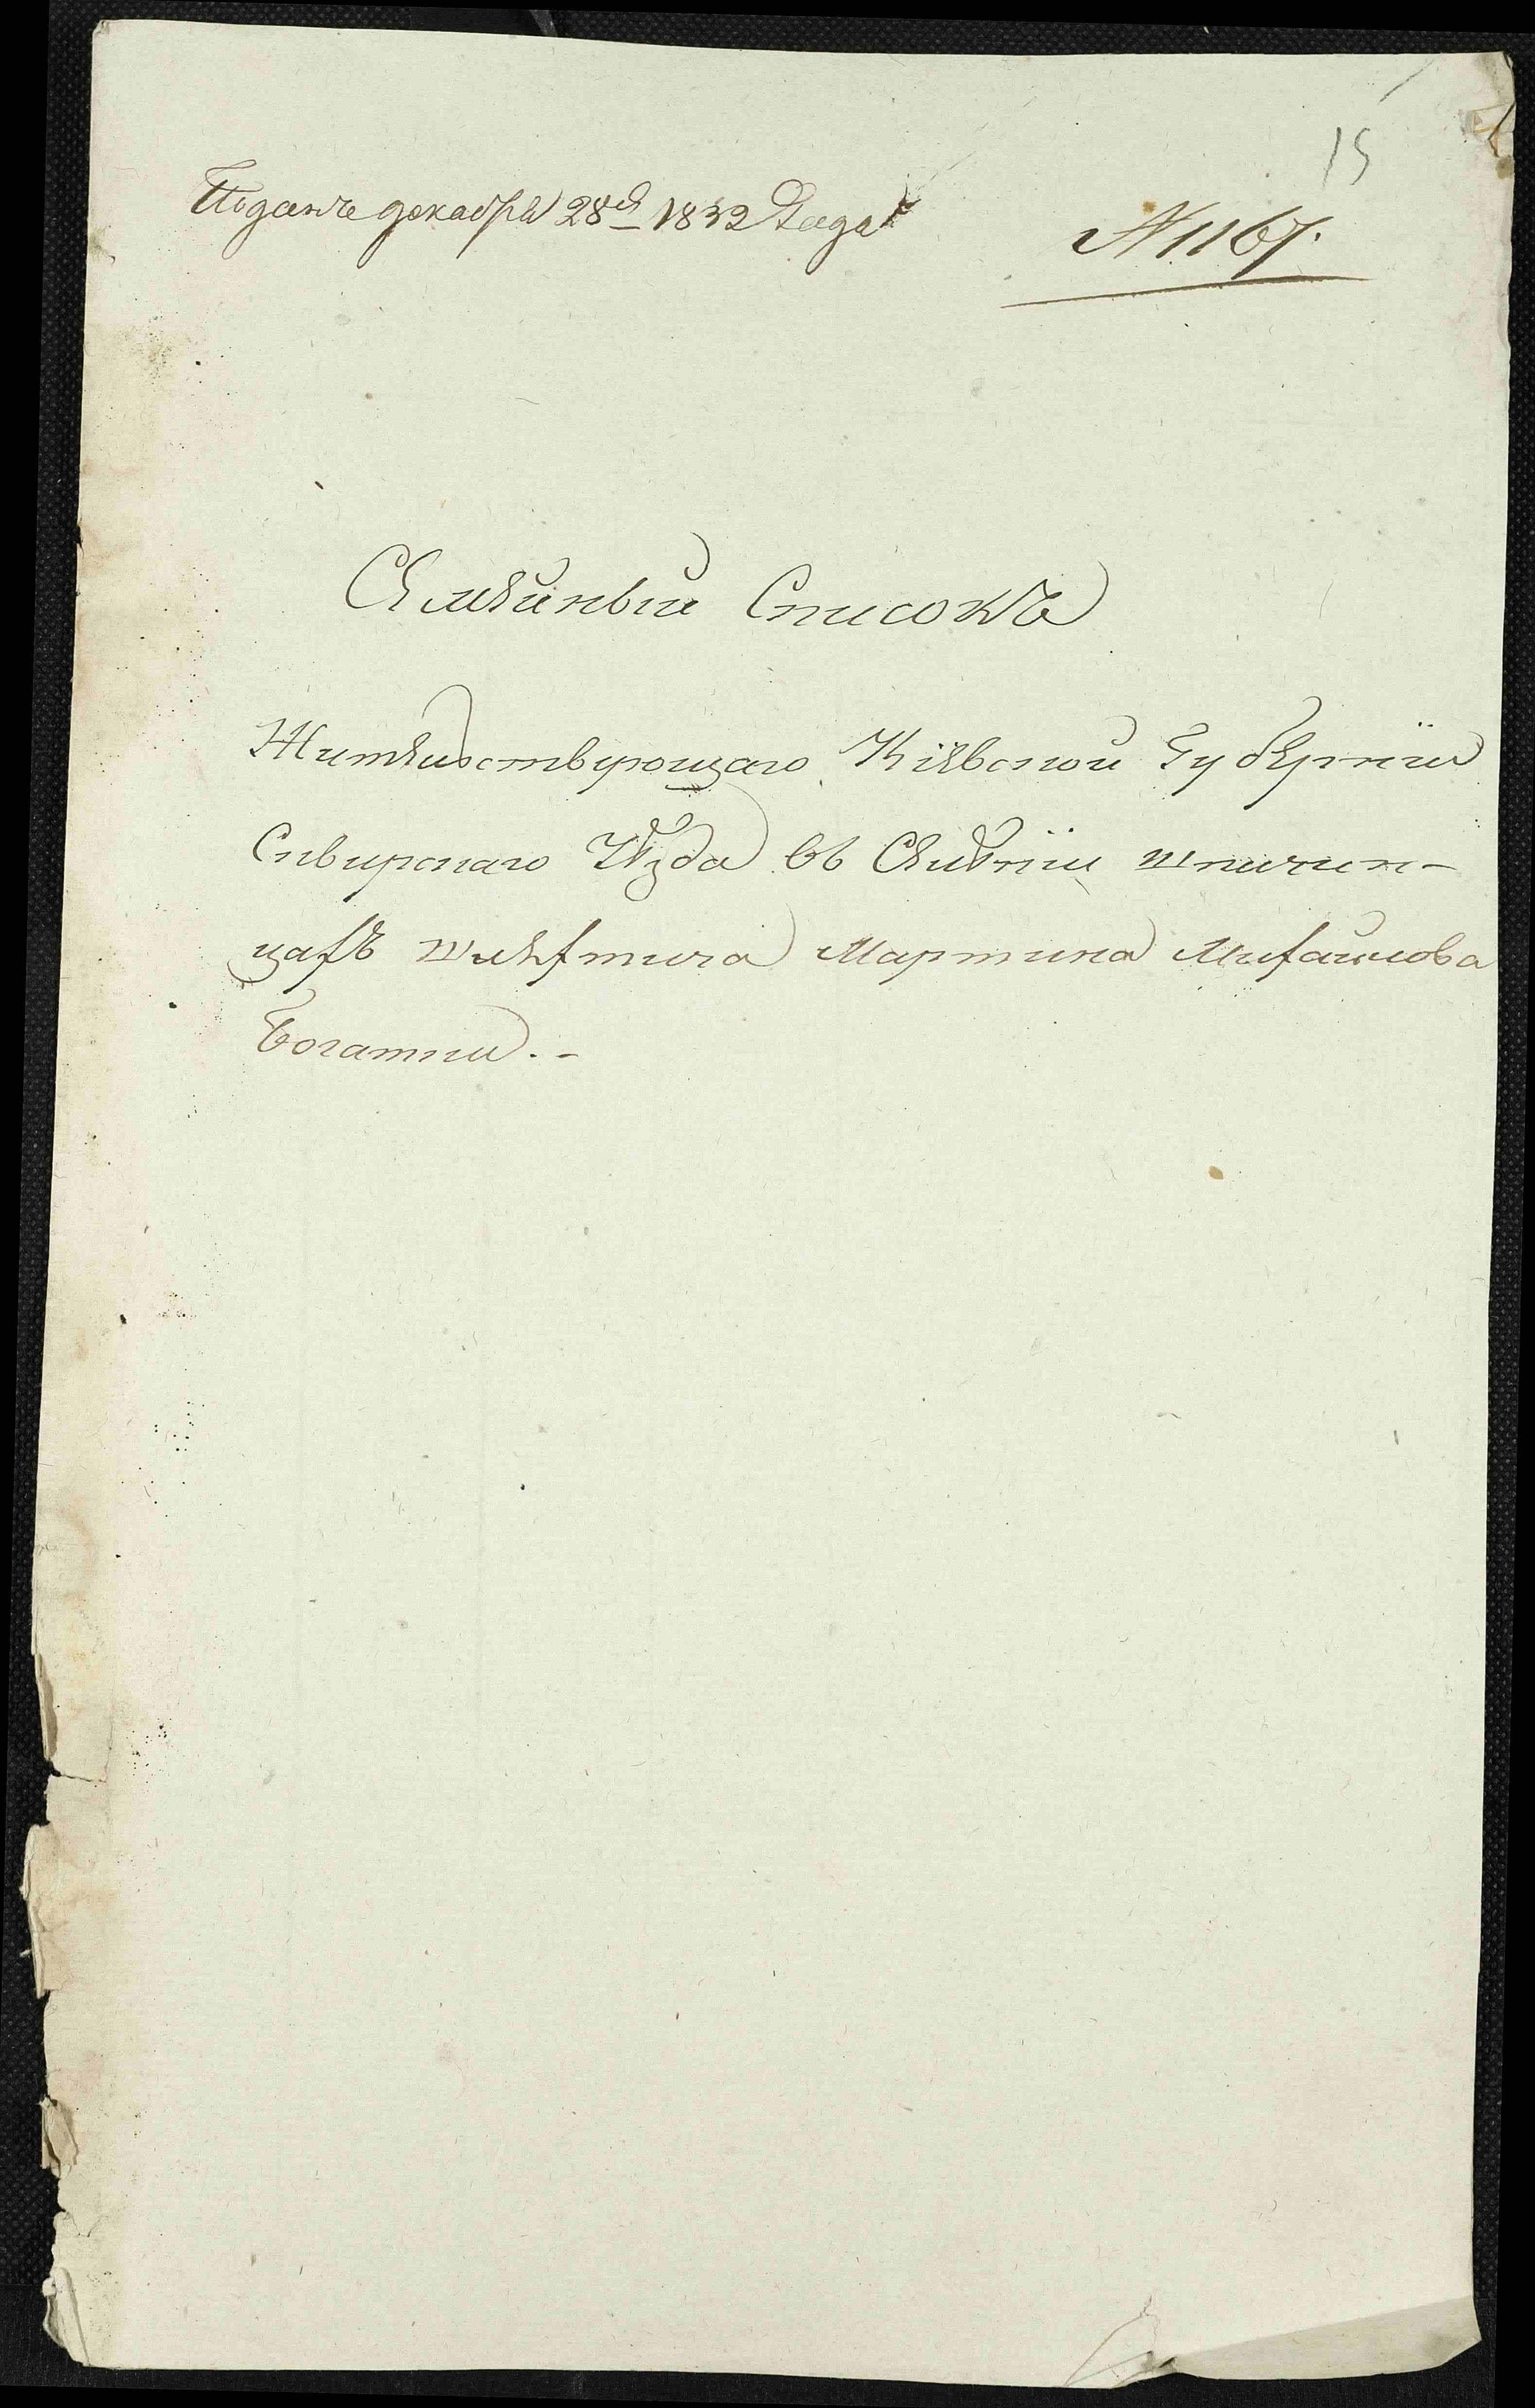 15
Поданъ декабря 28го 1832 Года
№ 1167.
Семейный Списокъ
Жительствующаго Кіевской Губерніи
Сквирскаго Уѣзда въ Селеніи Шпичин-
цахъ шляхтича Мартина Михайлова